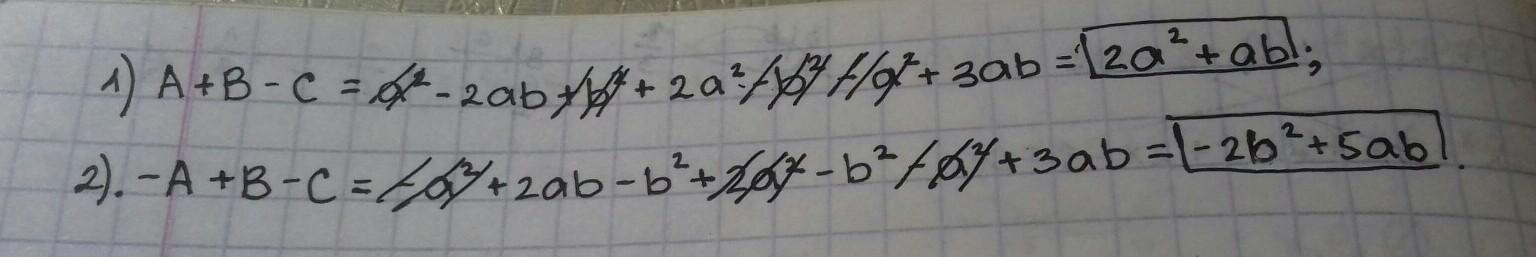 1) A + B - C = a² - 2ab + b² + 2a² - b² - a² + 3ab = 2a² + ab;
2). -A + B - C = -a² + 2ab - b² + 2a² - b² - a² + 3ab = -2b² + 5ab.